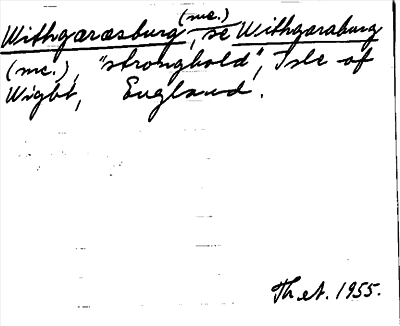 (mc.)
Withgarasburg, se Withgaraburg
(mc.), "stronghold", Isle of
Wight, England.
Th.et. 1955.